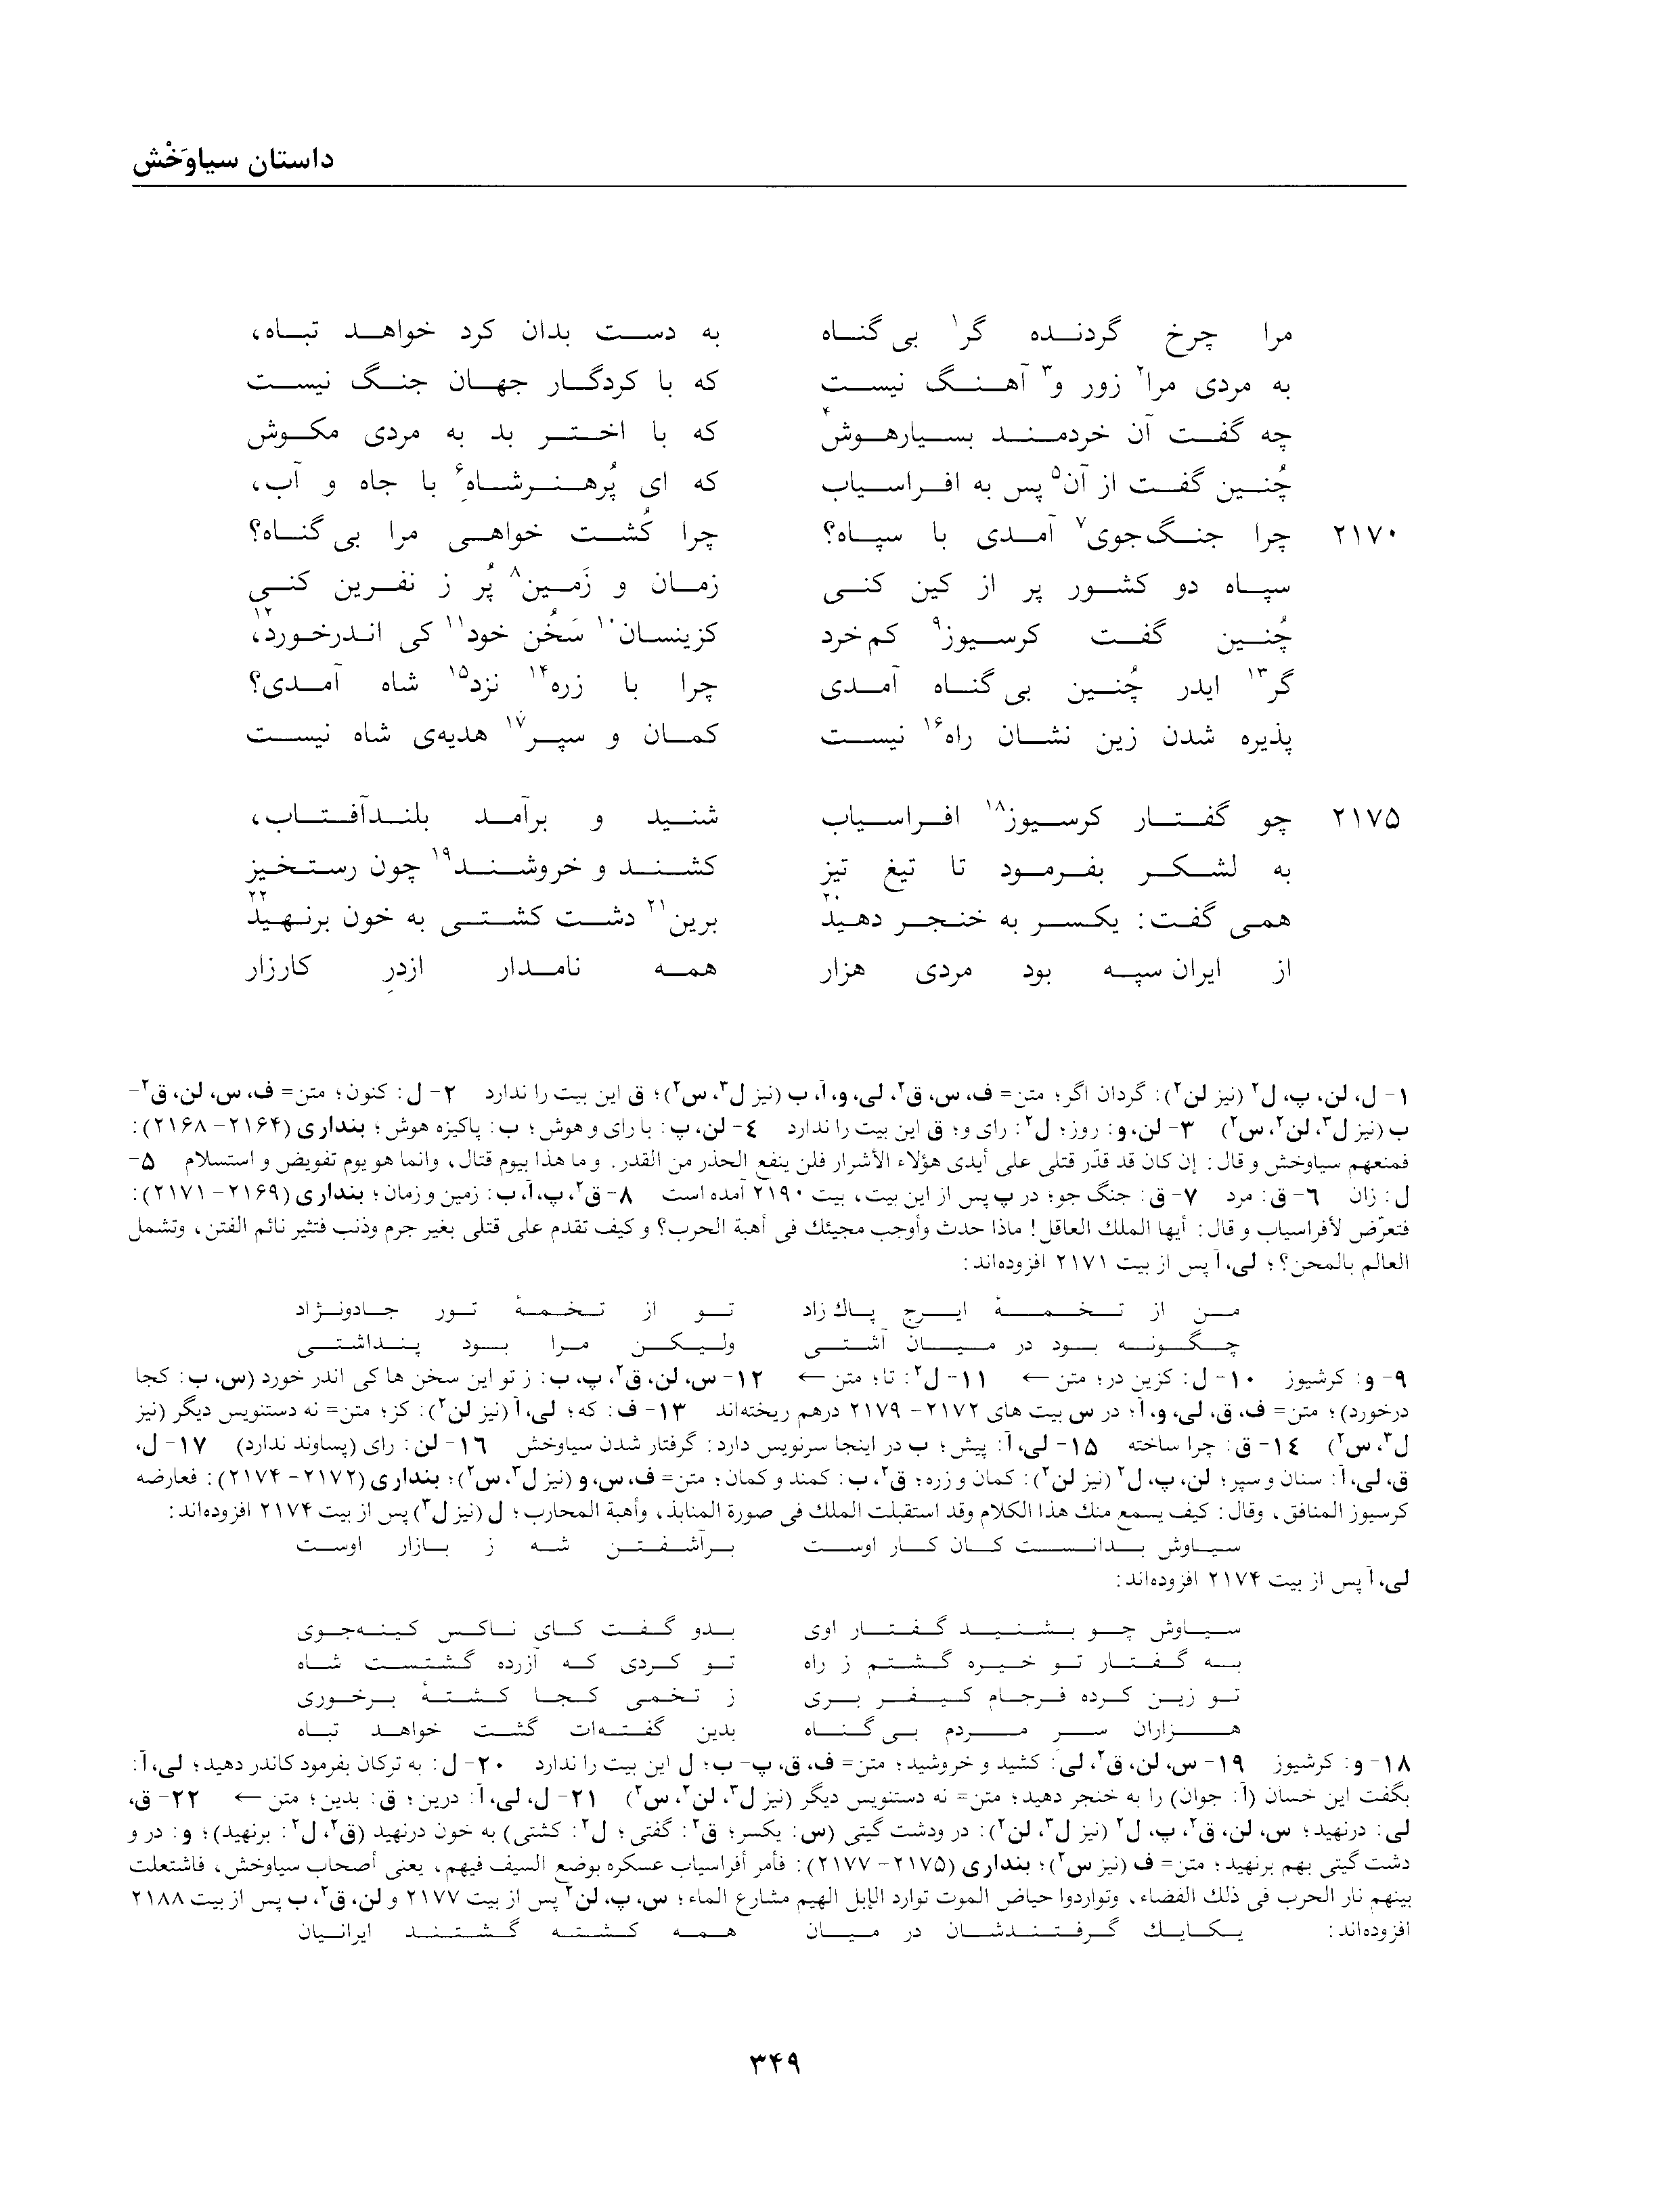 داستان سیاوَخْش
مرا چرخ گردنده گر¹ بی گناه به دست بدان کرد خواهد تباه،
به مردی مرا² زور و³ آهنگ نیست که با کردگار جهان جنگ نیست
چه گفت آن خردمند بسیارهوش⁴ که با اختر بد به مردی مکوش
چُنین گفت از آن⁵ پس به افراسیاب که ای پُرهنرشاهِ⁶ با جاه و آب،
۲۱۷۰ چرا جنگ‌جوی⁷ آمدی با سپاه؟ چرا کُشت خواهی مرا بی گناه؟
سپاه دو کشور پر از کین کنی زمان و زَمین⁸ پُر ز نفرین کنی
چُنین گفت کرسیوز⁹ کم خرد کزینسان¹⁰ سَخُن خود¹¹ کی اندرخورد¹²،
گر¹³ ایدر چُنین بی گناه آمدی چرا با زره¹⁴ نزد¹⁵ شاه آمدی؟
پذیره شدن زین نشان راه¹⁶ نیست کمان و سپر¹⁷ هدیه‌ی شاه نیست
۲۱۷۵ چو گفتار کرسیوز¹⁸ افراسیاب شنید و برآمد بلندآفتاب،
به لشکر بفرمود تا تیغ تیز کشند و خروشند¹⁹ چون رستخیز
همی گفت: یکسر به خنجر دهید²⁰ برین²¹ دشت کشتی به خون برنهید²²
از ایران سپه بود مردی هزار همه نامدار ازدرِ کارزار
۱- ل، لن، پ، ل² (نیز لن²): گردان اگر؛ متن= ف، س، ق²، لی، و، آ، ب (نیز ل³، س²)؛ ق این بیت را ندارد ۲- ل: کنون؛ متن= ف، س، لن، ق²-
ب (نیز ل³، لن²، س²) ۳- لن، و: روز؛ ل²: رای و؛ ق این بیت را ندارد ٤- لن، پ: با رای و هوش؛ ب: پاکیزه هوش؛ بنداری (۲۱۶۴- ۲۱۶۸):
فمنعهم سیاوخش و قال: إن کان قد قدّر قتلی علی أیدی هؤلاء الأشرار فلن ینفع الحذر من القدر. و ما هذا بیوم قتال، وانما هو یوم تفویض و استسلام ۵-
ل: زان ٦- ق: مرد ۷- ق: جنگ جو؛ در پ پس از این بیت، بیت ۲۱۹۰ آمده است ۸- ق²، پ، آ، ب: زمین و زمان؛ بنداری (۲۱۶۹- ۲۱۷۱):
فتعرّض لأفراسیاب و قال: أیها الملك العاقل! ماذا حدث وأوجب مجیئك فی أهبة الحرب؟ و کیف تقدم علی قتلی بغیر جرم وذنب فتثیر نائم الفتن، وتشمل
العالم بالمحن؟؛ لی، آ پس از بیت ۲۱۷۱ افزوده‌اند:
من از تخمهٔ ایرج پاك زاد تو از تخمهٔ تور جادونژاد
چگونه بود در میان آشتی ولیکن مرا بود پنداشتی
۹- و: کرشیوز ۱۰- ل: کزین در؛ متن ← ۱۱- ل²: تا؛ متن ← ۱۲- س، لن، ق²، پ، ب: ز تو این سخن ها کی اندر خورد (س، ب: کجا
درخورد)؛ متن= ف، ق، لی، و، آ؛ در س بیت های ۲۱۷۲- ۲۱۷۹ درهم ریخته‌اند ۱۳- ف: که؛ لی، آ (نیز لن²): کز؛ متن= نه دستنویس دیگر (نیز
ل³، س²) ۱٤- ق: چرا ساخته ۱۵- لی، آ: پیش؛ ب در اینجا سرنویس دارد: گرفتار شدن سیاوخش ۱٦- لن: رای (پساوند ندارد) ۱۷- ل،
ق، لی، آ: سنان و سپر؛ لن، پ، ل² (نیز لن²): کمان و زره؛ ق²، ب: کمند و کمان؛ متن= ف، س، و (نیز ل³، س²)؛ بنداری (۲۱۷۲- ۲۱۷۴): فعارضه
کرسیوز المنافق، وقال: کیف یسمع منك هذا الکلام وقد استقبلت الملك فی صورة المنابذ، وأهبة المحارب؛ ل (نیز ل³) پس از بیت ۲۱۷۴ افزوده‌اند:
سیاوش بدانست کان کار اوست برآشفتن شه ز بازار اوست
لی، آ پس از بیت ۲۱۷۴ افزوده‌اند:
سیاوش چو بشنید گفتار اوی بدو گفت کای ناکس کینه‌جوی
به گفتار تو خیره گشتم ز راه تو کردی که آزرده گشتست شاه
تو زین کرده فرجام کیفر بری ز تخمی کجا کشتهٔ برخوری
هزاران سر مردم بی گناه بدین گفته‌ات گشت خواهد تباه
۱۸- و: کرشیوز ۱۹- س، لن، ق²، لی: کشید و خروشید؛ متن= ف، ق، پ- ب؛ ل این بیت را ندارد ۲۰- ل: به ترکان بفرمود کاندر دهید؛ لی، آ:
بگفت این خسان (آ: جوان) را به خنجر دهید؛ متن= نه دستنویس دیگر (نیز ل³، لن²، س²) ۲۱- ل، لی، آ: درین؛ ق: بدین؛ متن ← ۲۲- ق،
لی: درنهید؛ س، لن، ق²، پ، ل² (نیز ل³، لن²): در ودشت گیتی (س: یکسر؛ ق²: گفتی؛ ل²: کشتی) به خون درنهید (ق²، ل²: برنهید)؛ و: در و
دشت گیتی بهم برنهید؛ متن= ف (نیز س²)؛ بنداری (۲۱۷۵- ۲۱۷۷): فأمر أفراسیاب عسکره بوضع السیف فیهم، یعنی أصحاب سیاوخش، فاشتعلت
بینهم نار الحرب فی ذلك الفضاء، وتواردوا حیاض الموت توارد الإبل الهیم مشارع الماء؛ س، پ، لن² پس از بیت ۲۱۷۷ و لن، ق²، ب پس از بیت ۲۱۸۸
افزوده‌اند: یکایك گرفتندشان در میان همه کشته گشتند ایرانیان
۳۴۹